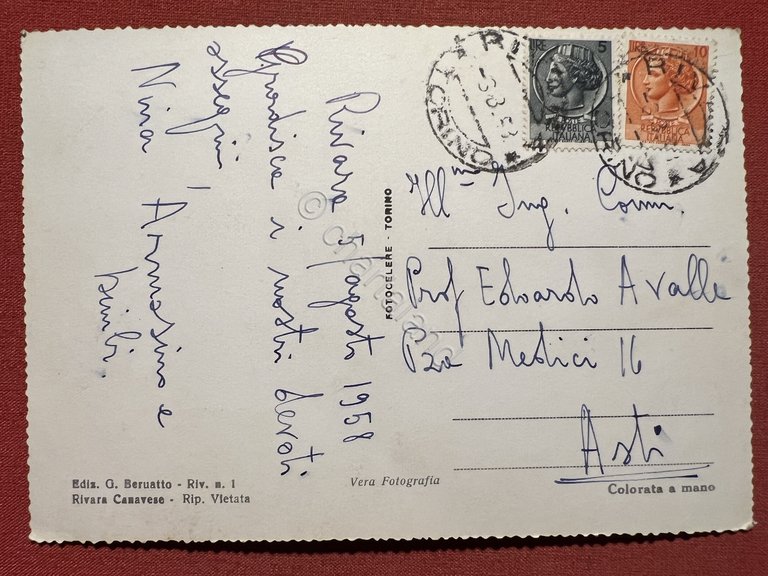 Rivara 5 agosto 1958
Gradisca i nostri devoti
ossequi
Nina, Armosino e
bimbi.
Ediz. G. Beruatto - Riv. n. 1
Rivara Canavese - Rip. Vietata
Vera Fotografia
FOTOCELERE - TORINO
LIRE 5
REPUBBLICA
ITALIANA
LIRE 10
REPUBBLICA
ITALIANA
TORINO
Ill.mo Ing. Comm.
Prof Edoardo Avalle
Pza Medici 16
Asti
Colorata a mano